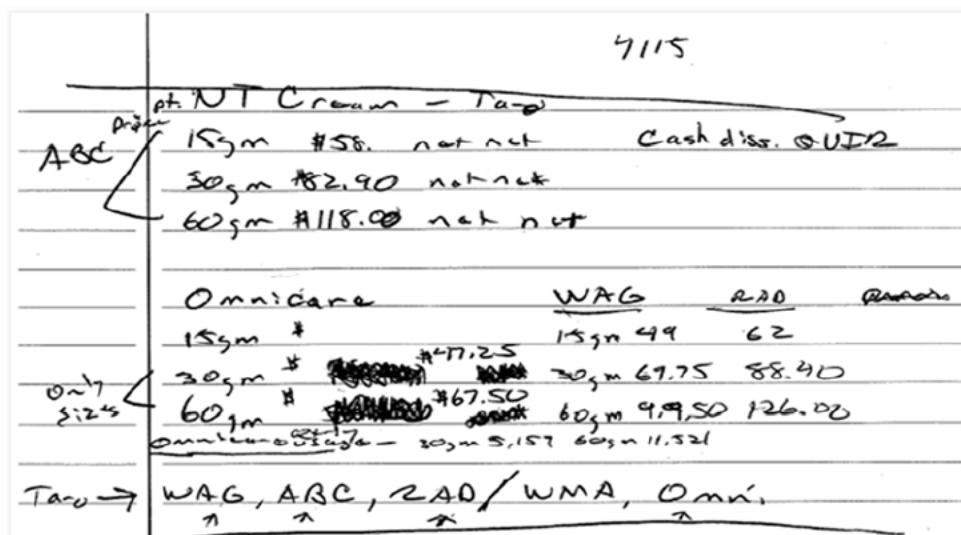 4115
pt. NT Cream - Taro
ABC
15gm $58. net net Cash diss. QUIR
30gm $82.90 net net
60gm $118.00 net net
Omnicare WAG RAD
15gm $ 15gm 49 62
30gm $ $47.25 30gm 69.75 88.40
only sizes
60gm $ $67.50 60gm 99.50 126.00
Omnicare usage - 30gm 5,157 60gm 11,521
Taro → WAG, ABC, RAD/WMA, Omni.